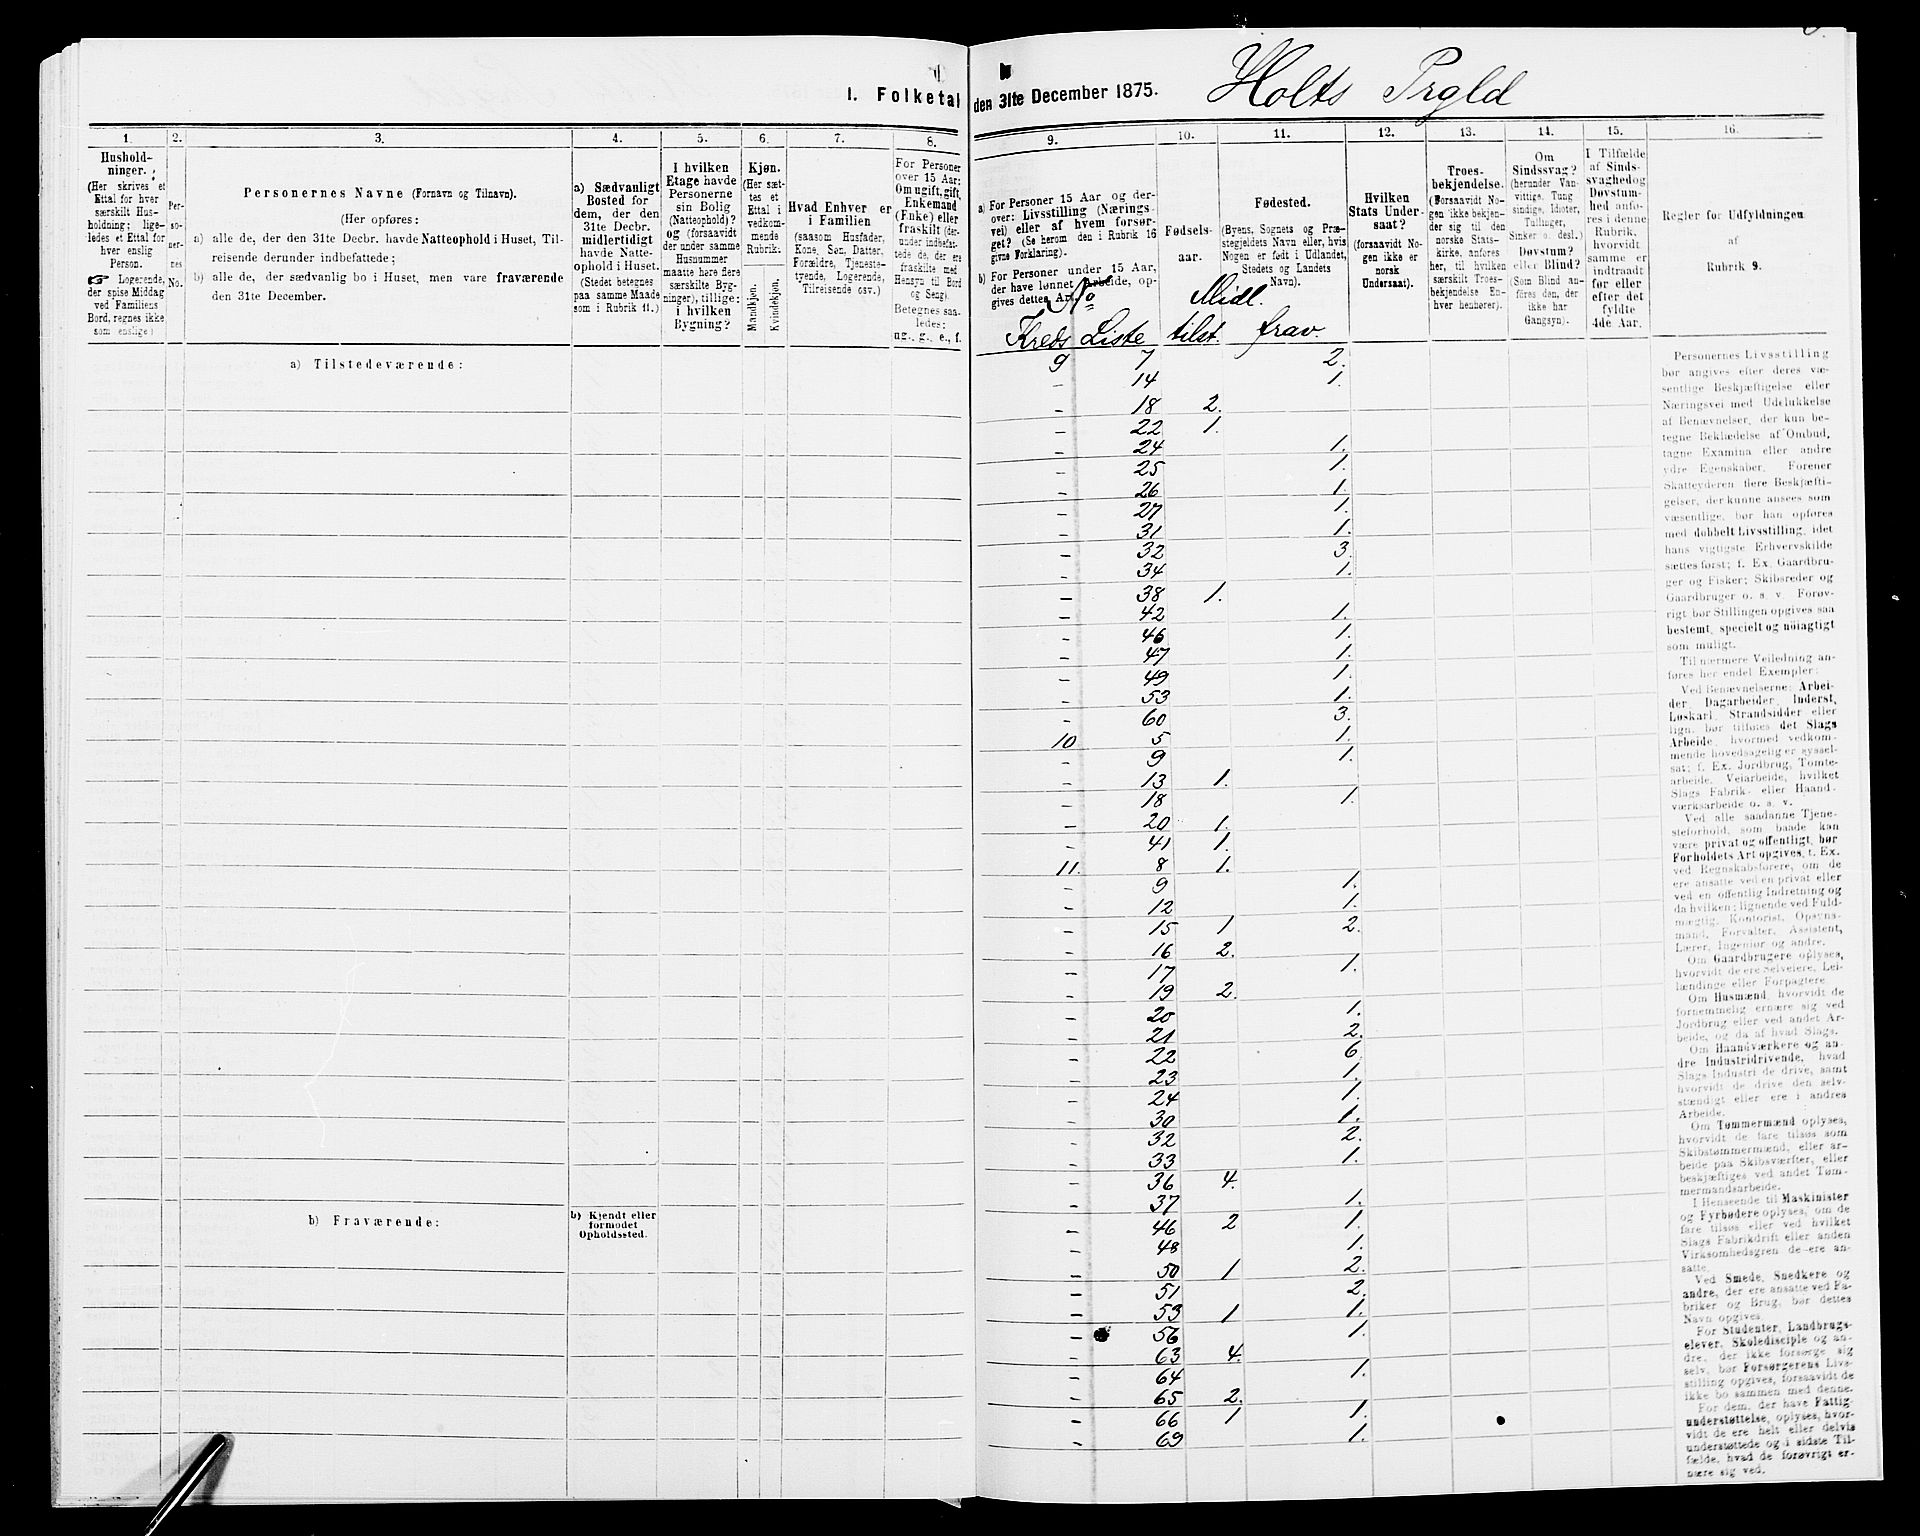 I. Folketal den 31te December 1875. Holts Prgld
1. 2. 3. 4. 5. 6. 7. 8. 9. 10. 11. 12. 13. 14. 15. 16.
Hushold-
ninger.
(Her skrives et
Ettal for hver
særskilt Hus-
holdning; lige-
ledes et Ettal for
hver enslig
Person.
☞ Logerende,
der spise Middag
ved Familiens
Bord, regnes ikke
som enslige)
Per-
so-
ner-
nes
No.
Personernes Navne (Fornavn og Tilnavn).
(Her opføres:
a) alle de, der den 31te Decbr. havde Natteophold i Huset, Til-
reisende derunder indbefattede;
b) alle de, der sædvanlig bo i Huset, men vare fraværende
den 31te December.
a) Sædvanligt
Bosted for
dem, der den
31te Decbr.
midlertidigt
havde Natte-
ophold i Huset.
(Stedet betegnes
paa samme Maade
som i Rubrik 11.)
I hvilken
Etage havde
Personerne
sin Bolig
(Natteophold)?
og (forsaavidt
der under samme
Husnummer
maatte høre flere
særskilte Byg-
ninger), tillige:
i hvilken
Bygning?
Kjøn.
(Her sæt-
tes et
Ettal i
vedkom-
mende
Rubrik.
Mandkjøn.
Kvindekjøn.
Hvad Enhver er
i Familien
(saasom Husfader,
Kone, Søn, Datter,
Forældre, Tjeneste-
tyende, Logerende,
Tilreisende osv.)
For Personer
over 15 Aar:
Om ugift, gift,
Enkemand
(Enke) eller
fraskilt (der-
under indbefat-
tede de, der ere
fraskilte med
Hensyn til Bord
og Seng).
Betegnes saa-
ledes:
ug., g., e., f.
a) For Personer 15 Aar og der-
over: Livsstilling (Nærings-
vei) eller af hvem forsør-
get? (Se herom den i Rubrik 16
givne Forklaring).
b) For Personer under 15 Aar,
der have lønnet Arbeide, op-
gives dettes Art.
Fødsels-
aar.
Fødested.
(Byens, Sognets og Præ-
stegjeldets Navn eller, hvis
Nogen er født i Udlandet,
Stedets og Landets
Navn).
Hvilken
Stats Under-
saat?
(forsaavidt No-
gen ikke er
norsk
Undersaat).
Troes-
bekjendelse.
(Forsaavidt No-
gen ikke bekjen-
der sig til den
norske Stats-
kirke, anføres
her, til hvilken
særskilt Troes-
bekjendelse En-
hver henhører).
Om
Sindssvag?
(herunder Van-
vittige, Tung-
sindige, Idioter,
Tullinger,
Sinker o. desl.)
Døvstum?
eller Blind?
(Som Blind an-
føres den, der
ikke har
Gangsyn).
I Tilfælde
af Sinds-
svaghed og
Døvstum-
hed anfø-
res i denne
Rubrik,
hvorvidt
samme er
indtraadt
før eller
efter det
fyldte
4de Aar.
Regler for Udfyldningen
af
Rubrik 9.
No Midl.
Kreds Liste tilst. frav.
a) Tilstedeværende:
9 7 2.
– 14 1.
– 18 2.
– 22 1.
– 24 1.
– 25 1.
– 26 1.
– 27 1.
– 31 1.
– 32 3.
– 34 1.
– 38 1.
– 42 1.
– 46 1.
– 47 1.
– 49 1.
– 53 1.
– 60 3.
10 5 1.
– 9 1.
– 13 1.
– 18 1.
– 20 1.
– 41 1.
11. 8 1.
– 9 1.
– 12 1.
– 15 1 2.
– 16 2.
– 17 1.
– 19 2.
– 20 1.
– 21 2.
– 22 6
– 23 1.
– 24 1.
– 30 1.
– 32 2.
– 33 1.
– 36 4.
– 37 1.
– 46 2 1.
– 48 1.
– 50 1 2.
– 51 2.
– 53 1 1.
– 56 1.
– 63 4.
– 64 1.
– 65 2.
– 66 1 1.
– 69 1.
b) Fraværende:
b) Kjendt eller
formodet
Opholdssted.
Personernes Livsstilling
bør angives efter deres væ-
sentlige Beskjæftigelse eller
Næringsvei med Udelukkelse
af Benævnelser, der kun be-
tegne Beklædelse af Ombud,
tagne Examina eller andre
ydre Egenskaber. Forener
Skatteyderen flere Beskjæfti-
gelser, der kunne ansees som
væsentlige, bør han opføres
med dobbelt Livsstilling, idet
hans vigtigste Erhvervskilde
sættes først; f. Ex. Gaardbru-
ger og Fisker; Skibsreder og
Gaardbruger o. s. v. Forøv-
rigt bør Stillingen opgives saa
bestemt, specielt og nöiagtigt
som muligt.
Til nærmere Veiledning an-
føres her endel Exempler:
Ved Benævnelserne: Arbei-
der, Dagarbeider, Inderst,
Løskarl, Strandsidder eller
lign. bør tilføies det Slags
Arbeide, hvormed vedkom-
mende hovedsagelig er syssel-
sat; f. Ex. Jordbrug, Tomte-
arbeide, Veiarbeide, hvilket
Slags Fabrik- eller Haand-
værksarbeide o. s. v.
Ved alle saadanne Tjene-
steforhold, som baade kan
være privat og offentligt, bør
Forholdets Art opgives, t. Ex.
ved Regnskabsførere, om de
ere ansatte ved en privat eller
ved en offentlig Indretning og
da hvilken; lignende ved Fuld-
mægtig, Kontorist, Opsyns-
mand, Forvalter, Assistent,
Lærer, Ingeniør og andre.
Om Gaardbrugere oplyses,
hvorvidt de ere Selveiere, Lei-
lændinge eller Forpagtere.
Om Husmænd, hvorvidt de
fornemmelig ernære sig ved
Jordbrug eller ved andet Ar-
beide, og da af hvad Slags.
Om Haandværkere og an-
dre Industridrivende, hvad
Slags Industri de drive, samt
hvorvidt de drive den selv-
stændigt eller ere i andres
Arbeide.
Om Tømmermænd oplyses,
hvorvidt de fare tilsøs som
Skibstømmermænd, eller ar-
beide paa Skibsværfter, eller
beskjæftiges ved andet Tøm-
mermandsarbeide.
I Henseende til Maskinister
og Fyrbødere oplyses, om de
fare tilsøs eller ved hvilket
Slags Fabrikdrift eller anden
Virksomhedsgren de ere an-
satte.
Ved Smede, Snedkere og
andre, der ere ansatte ved Fa-
briker og Brug, bør dettes
Navn opgives.
For Studenter, Landbrugs-
elever, Skoledisciple og an-
dre, der ikke forsørge sig
selv, bør Forsørgerens Livs-
stilling opgives, forsaavidt de
ikke bo sammen med denne.
For dem, der have Fattig-
understøttelse, oplyses, hvor-
vidt de ere helt eller delvis
understøttede og i sidste Til-
fælde, hvad de forøvrigt er-
nære sig ved.